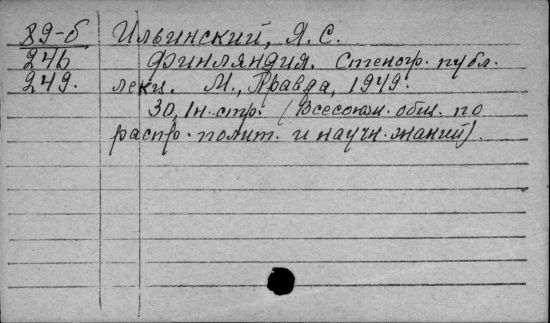 89-б Ильинский, Я. С.
246 Финляндия. Стеногр. публ.
249. лекц. М., Правда, 1949.
30, 1н. стр. (Всесоюзн. общ. по
распр. полит. и научн. знаний).